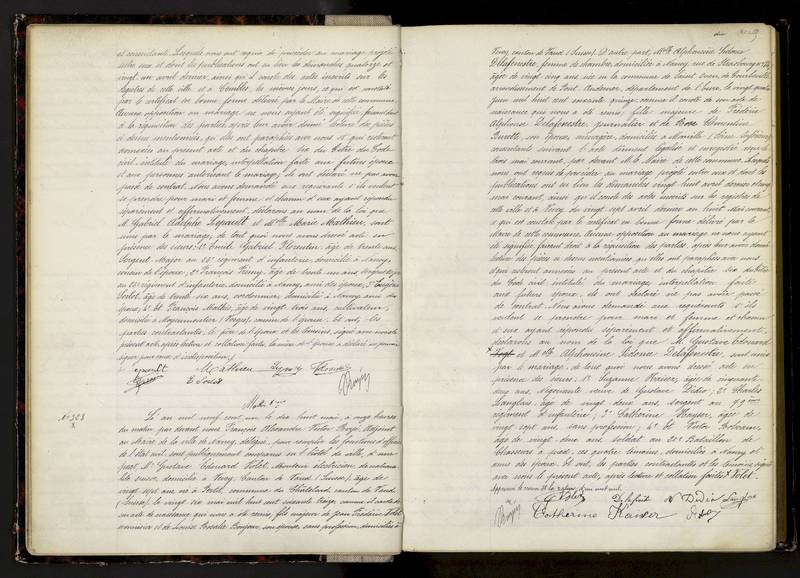 et consentante. Lesquels nous ont requis de procéder au mariage projeté
entre eux et dont les publications ont eu lieu les dimanches quatorze et
vingt un avril dernier ainsi qu'il conste des actes inscrits sur les
registres de cette ville et à les mêmes jours, ce qui est constaté
par le certificat en bonne forme délivré par le Maire de cette commune
Aucune opposition au mariage ne nous ayant été signifiée, faisant droit
à la réquisition des parties, après leur avoir donné lecture des pièces
ci dessus mentionnées, qu'elles ont paraphées avec nous et qui resteront
annexées au présent acte et du chapitre six du Titre du Code
civil, intitulé du mariage, interpellation faite aux futurs époux
et aux personnes autorisant le mariage, ils ont déclaré ne pas avoir
passé de contrat. Nous avons demandé aux requérants s'ils veulent
se prendre pour mari et femme et chacun d'eux ayant répondu
séparément et affirmativement, déclarons au nom de la loi que
M. Gabriel Adolphe et Mlle Marie Mathieu, sont
unis par le mariage, de tout quoi nous avons dressé acte en
présence des sieurs: 1° Emile Gabriel Florentin, âgé de trente ans,
Sergent Major au 26e régiment d'infanterie, domicilié à Nancy,
cousin de l'époux; 2° François âgé de trente un ans, Sergent
au 26e régiment d'infanterie, domicilié à Nancy, ami des époux,
âgé de trente six ans, cordonnier domicilié à Nancy ami des
époux; 4° et François Mathis, âgé de vingt trois ans, cultivateur,
domicilié à Moyenmoutier (Vosges), cousin de l'épouse; Et ont, les
parties contractantes, le père de l'époux et les témoins, signé avec nous le
présent acte après lecture et collation faites, la mère de l'épouse a déclaré ne pouvoir
signer pour cause d'indisposition
M Mathieu
N° 328
L'an mil neuf cent un le dix huit mai, à onze heures
du matin par devant nous François Alexandre Victor Boyé, Adjoint
au Maire de la ville de Nancy, délégué, pour remplir les fonctions d'officier
de l'état civil, sont publiquement comparus en l'hôtel de ville, d'une
part, Mr Gustave Edouard Volet, Monteur électricien, de nationa-
lité suisse, domicilié à Vevey, Canton de Vaud (Suisse), âgé de
vingt sept ans né à commune du Châtelard, canton de Vaud
(Suisse), le vingt six mai mil huit cent soixante treize, comme il conste de
son acte de naissance qui nous a été remis, fils majeur de Jean Frédéric Volet,
et de Louise Rosalie Bonjour, son épouse, sans profession, domiciliés à
Vevey, canton de Vaud (Suisse). D'autre part, Mlle Alphonsine Sidonie
Delafenestre, femme de chambre, domiciliée à Nancy, rue de Strasbourg
âgée de vingt cinq ans née en la commune de Saint
arrondissement de Pont-Audemer, département de l'Eure, le vingt quatre
Juin mil huit cent soixante quinze, comme il conste de son acte de
naissance qui nous a été remis, fille majeure de Frédéric
Alphonse Delafenestre, journalier et de Rose Clémentine
son épouse, ménagère, domiciliés à (Seine Inférieure)
consentants suivant acte dûment légalisé et enregistré reçu le
trois mai courant, par devant M. le Maire de cette commune. Lesquels
nous ont requis de procéder au mariage projeté entre eux et dont les
publications ont eu lieu les dimanches vingt huit avril dernier et cinq
mai courant, ainsi qu'il conste des actes inscrits sur les registres de
cette ville et à Vevey du vingt sept avril dernier au huit mai courant,
ce qui est constaté par le certificat en bonne forme délivré par le
Maire de cette commune. Aucune opposition au mariage ne nous ayant
été signifiée, faisant droit à la réquisition des parties, après leur avoir donné
lecture des pièces ci dessus mentionnées, qu'elles ont paraphées avec nous
et qui resteront annexées au présent acte et du chapitre six du Titre
du Code civil, intitulé du mariage, interpellation faite
aux futurs époux, ils ont déclaré ne pas avoir passé
de contrat. Nous avons demandé aux requérants s'ils
veulent se prendre pour mari et femme et chacun
d'eux ayant répondu séparément et affirmativement,
déclarons au nom de la loi que M. Gustave Edouard
et Mlle Alphonsine Sidonie Delafenestre, sont unis
par le mariage, de tout quoi nous avons dressé acte en
présence des sieurs: 1° Suzanne Kaiser, âgée de cinquante
ans, négociante veuve de Gustave Didio; 2° Charles
Langlais, âgé de vingt deux ans, sergent au
régiment d'infanterie; 3° Catherine Kayser, âgée de
vingt sept ans, sans profession; 4° et Victor
âgé de vingt deux ans soldat au 20e Bataillon de
Chasseurs à pied, ces quatre témoins, domiciliés à Nancy et
amis des époux. Et ont, les parties contractantes et les témoins, signé
avec nous le présent acte, après lecture et collation faites. x Volet.
Volet Delafenestre Vve Didio
Catherine Kaiser